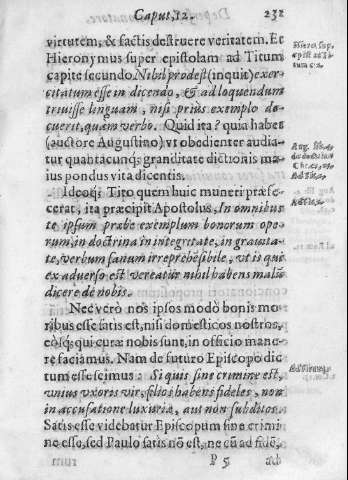 Caput, 12. 232
virtutem, & factis destruere veritatem. Et
Hieronymus super epistolam ad Titum
capite secundo. Nihil prodest (inquit) exer-
citatum esse in dicendo, & ad loquendum
triuisse linguam, nisi prius exemplo do-
cuerit, quam verbo. Quid ita? quia habet
(auctore Augustino) vt obedienter audia-
tur quantacunq; granditate dictionis ma-
ius pondus vita dicentis.
Ideoq; Tito quem huic muneri præfe-
cerat, ita præcipit Apostolus, In omnibus
te ipsum præbe exemplum bonorum ope-
rum, in doctrina in integritate, in grauita-
te, verbum sanum irreprehēsibile, vt is qui
ex aduerso est vereatur nihil habens malū
dicere de nobis.
Nec verò nos ipsos modò bonis mo-
ribus esse satis est, nisi domesticos nostros,
eosq; qui curæ nobis sunt, in officio mane-
re faciamus. Nam de futuro Episcopo dic
tum esse scimus: Si quis sine crimine est,
vnius vxoris vir, filios habens fideles, non
in accusatione luxuriæ, aut non subditos.
Satis esse videbatur Episcopum sine crimi
ne esse, sed Paulo satis nō est, ne cū ad fidē,
P 5 ad
Hiero. sup.
epist. ad Ti
tum c. 2.
Aug. lib. 4.
de doctrina
Ch
Ad Tit.